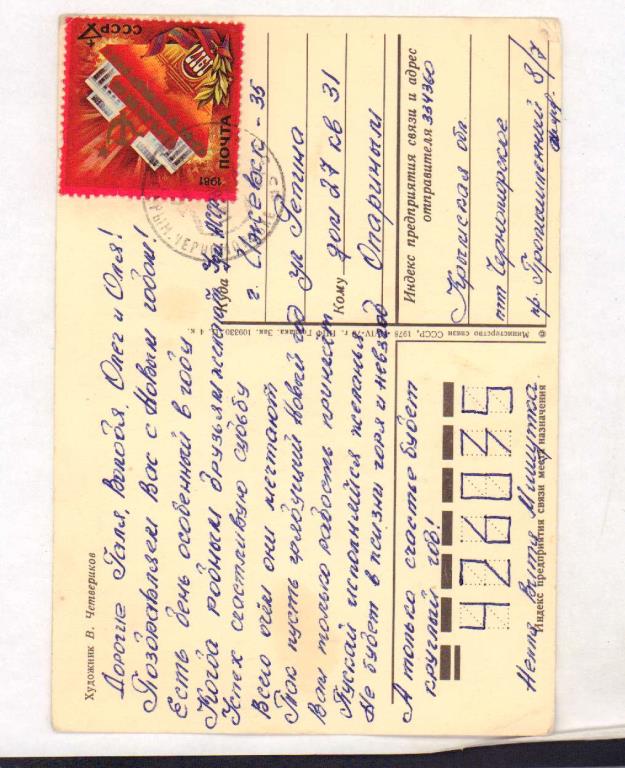 Художник В. Четвериков
Дорогие Галя, Володя, Олег и Оля!
Поздравляем Вас с Новым годом!
Есть день особенный в году
Когда родным друзьям желают
Успех счастливую судьбу
Всего о чём они мечтают
Так пусть грядущий Новый год
Вам только радость принесет
Пускай исполняйся желанья
Не будет в жизни горя и невзгод
А только счастье будет
круглый год!
Неля Витя Мишутка
ПОЧТА
СССР
1981
Куда
г. Ижевск - 35
ул Репина
дом 27 кв 31
Кому Опариным
Индекс предприятия связи и адрес
отправителя 334360
Крымская обл.
пгт Черноморское
пр. Промышленный 8/7
© Министерство связи СССР, 1978
426035
Индекс предприятия связи места назначения